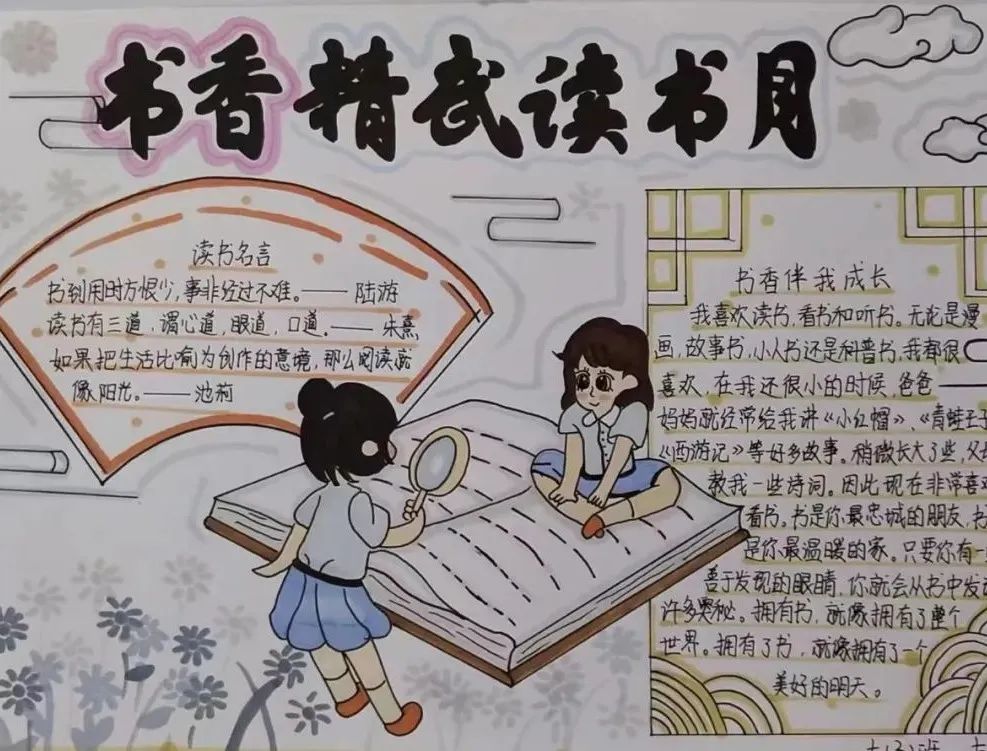 书香精武读书月
读书名言
书到用时方恨少,事非经过不难。—— 陆游
读书有三道,谓心道,眼道,口道。—— 朱熹
如果把生活比喻为创作的意境,那么阅读就
像阳光。—— 池莉
书香伴我成长
我喜欢读书,看书和听书。无论是漫
画,故事书,小人书还是科普书,我都很
喜欢,在我还很小的时候,爸爸
妈妈就经常给我讲《小红帽》、《青蛙王子
《西游记》等好多故事。稍微长大了些,父
教我一些诗词。因此现在非常喜欢
看书。书是你最忠城的朋友,书
是你最温暖的家。只要你有一
善于发现的眼睛,你就会从书中发
许多奥秘。拥有书,就像拥有了整个
世界。拥有了书,就像拥有了一个
美好的明天。